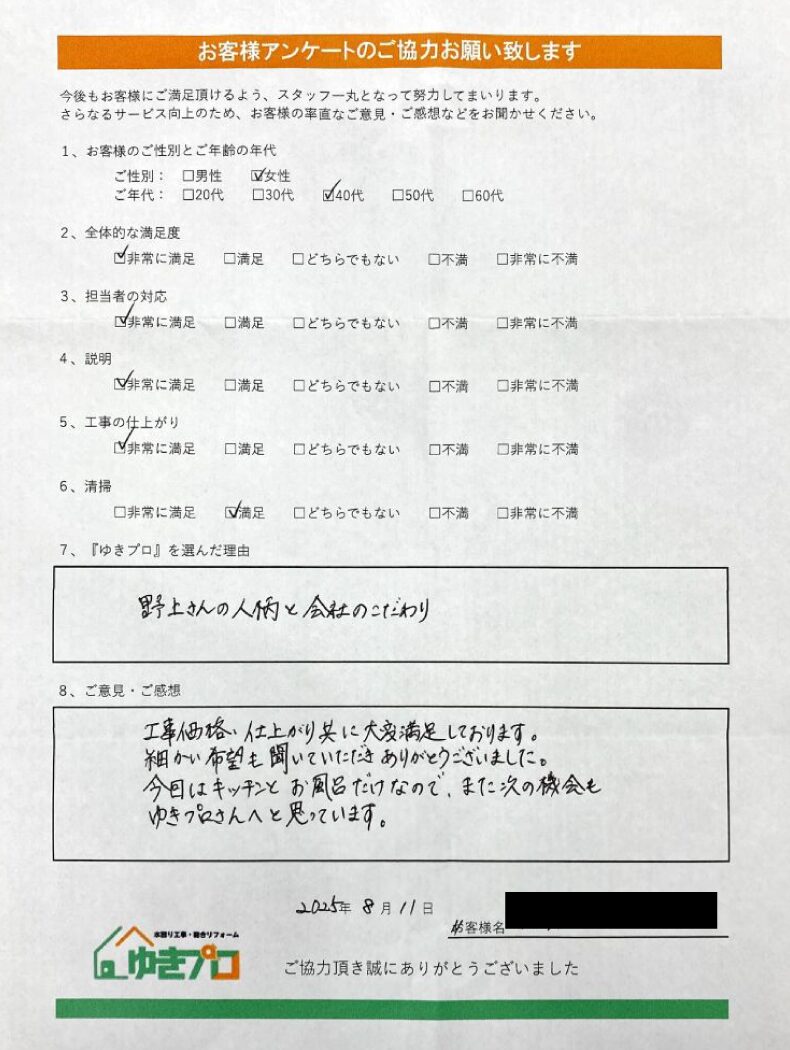 お客様アンケートのご協力お願い致します
今後もお客様にご満足頂けるよう、スタッフ一丸となって努力してまいります。
さらなるサービス向上のため、お客様の率直なご意見・ご感想などをお聞かせください。
1、お客様のご性別とご年齢の年代
ご性別： □男性 ☑女性
ご年代： □20代 □30代 ☑40代 □50代 □60代
2、全体的な満足度
☑非常に満足 □満足 □どちらでもない □不満 □非常に不満
3、担当者の対応
☑非常に満足 □満足 □どちらでもない □不満 □非常に不満
4、説明
☑非常に満足 □満足 □どちらでもない □不満 □非常に不満
5、工事の仕上がり
☑非常に満足 □満足 □どちらでもない □不満 □非常に不満
6、清掃
□非常に満足 ☑満足 □どちらでもない □不満 □非常に不満
7、『ゆきプロ』を選んだ理由
野上さんの人柄と会社のこだわり
8、ご意見・ご感想
工事価格、仕上がり共に大変満足しております。
細かい希望も聞いていただきありがとうございました。
今回はキッチンとお風呂だけなので、また次の機会も
ゆきプロさんへと思っています。
2025年 8月 11日
お客様名
水廻り工事・総合リフォーム
ゆきプロ
ご協力頂き誠にありがとうございました